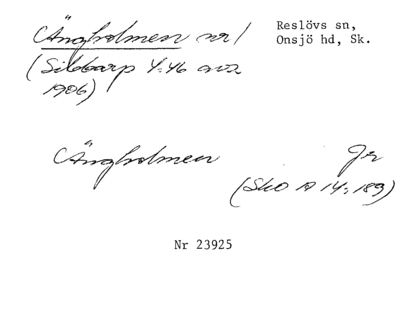 Ängholmen nr 1
Reslövs sn,
Onsjö hd, Sk.
(Sildbarp 4:46 avs
1906)
Ängholmen Jr
(Sko A 14:189)
Nr 23925